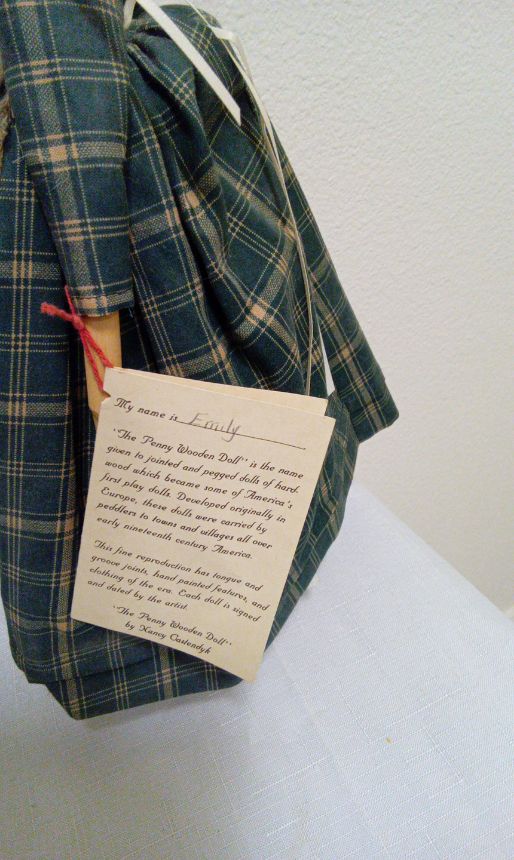 My name is Emily
"The Penny Wooden Doll" is the name
given to jointed and pegged dolls of hard
wood which became some of America's
first play dolls. Developed originally in
Europe, these dolls were carried by
peddlers to towns and villages all over
early nineteenth century America.
This fine reproduction has tongue and
groove joints, hand painted features, and
clothing of the era. Each doll is signed
and dated by the artist.
"The Penny Wooden Doll"
by Nancy Castendyk